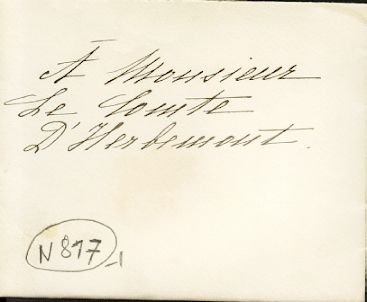 À Monsieur
Le Comte
D'Herbemont.
N 817-1